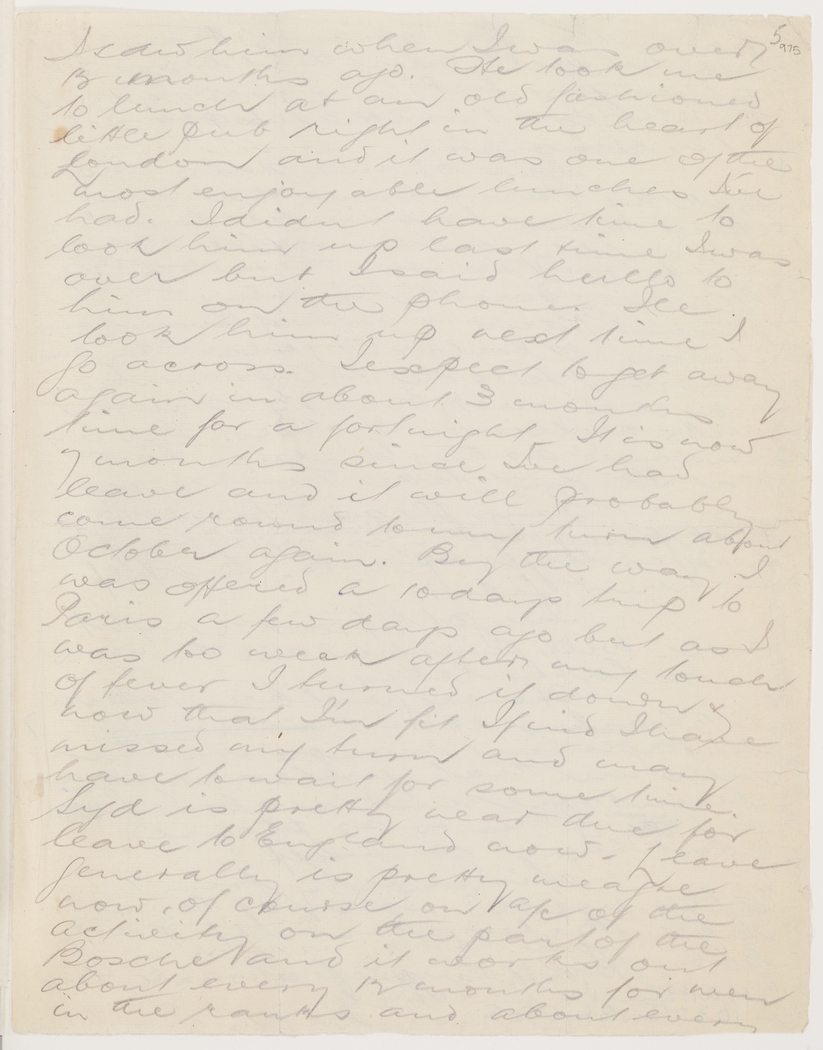 5
975
I saw him when I was over
12 months ago. He took me
to lunch at an old fashioned
little pub right in the heart of
London and it was one of the
most enjoyable lunches I've
had. I didn't have time to
look him up last time I was
over but I said hello to
him on the phone. I'll
look him up next time I
go across. I expect to get away
again in about 3 months
time for a fortnight. It is now
7 months since I've had
leave and it will probably
come round to my turn about
October again. By the way I
was offered a 10 days trip to
Paris a few days ago but as I
was too weak after my touch
of fever I turned it down &
now that I'm fit I find I have
missed my turn and may
have to wait for some time.
Syd is pretty near due for
leave to England now. Leave
generally is pretty meagre
now, of course on a/c of the
activity on the part of the
Bosche and it works out
about every 12 months for men
in the ranks and about every